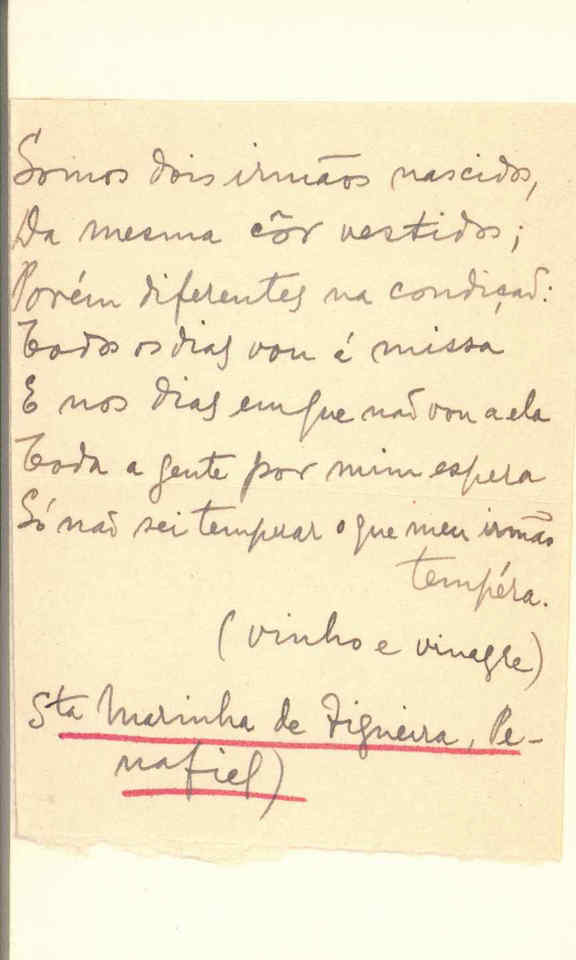 Somos dois irmãos nascidos,
Da mesma côr vestidos;
Porém diferentes na condição:
Todos os dias vou á missa
E nos dias em que não vou a ela
Toda a gente por mim espera
Só não sei temperar o que meu irmão
tempéra.
(vinho e vinagre)
Sta Marinha de Figueira, Pe-
nafiel)